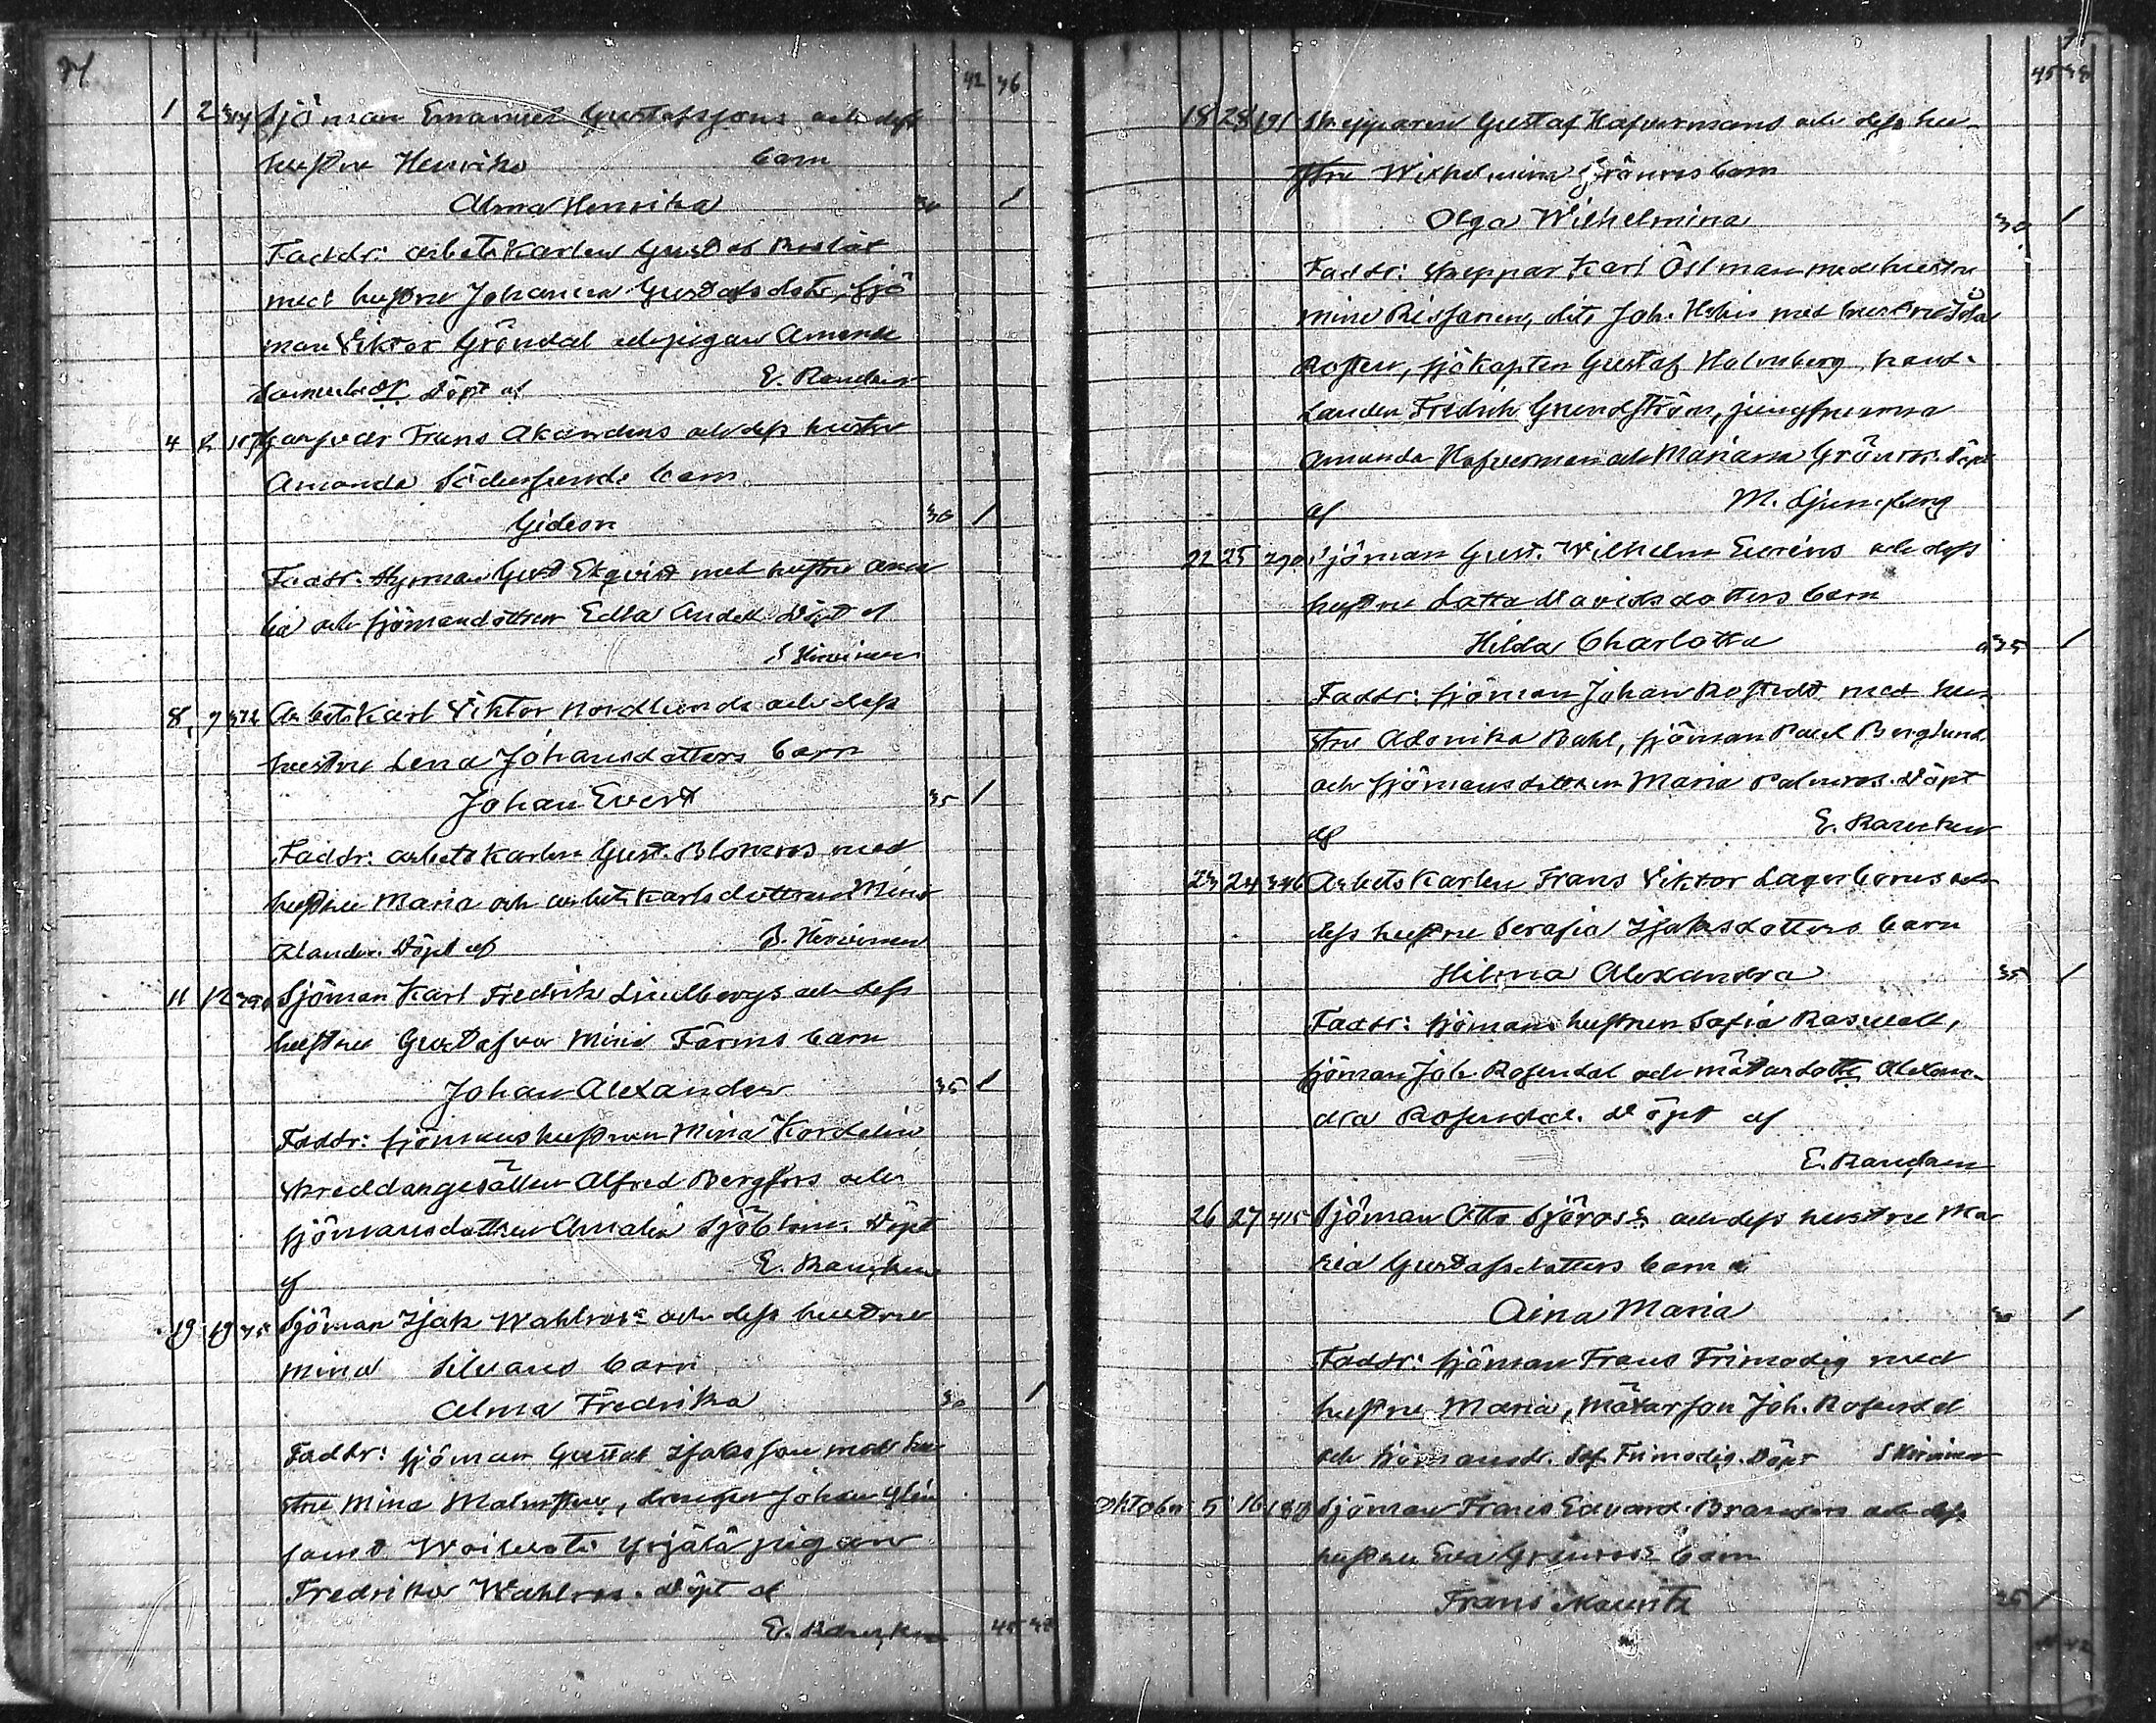 74
42 36
1 2 344 Sjöman Emanuel Gustafssons och dess
hustru Henrika barn
Alma Henrika 30 1
Faddr: arbetskarlen Gustaf
med hustru Johanna Gustafsdotr, sjö
man Viktor Gröndal och pigan Amanda
Döpt af E. Rancken
4 12 Frans Akanders och dess hustru
Amanda Söderlunds barn
Gideon 36 1
Faddr: Styrman Gust Ekqvist med hustru Ama
lia och sjömandottren Edla Döpt af
8 9 372 Arbetskarl Viktor Nordlunds och dess
hustru Lena Johansdotters barn
Johan Evert 35 1
Faddr: arbetskarlen Gust. Blomros med
hustru Maria och arbetskarlsdottren Mina
Alander. Döpt af
11 12 Sjöman Karl Fredrik Lindbergs och dess
hustru Gustafva Mina Färms barn
Johan Alexander 35 1
Faddr: sjömanshustrun Mina Kordelin
skreddargesällen Alfred Bergfors och
sjömansdottren Amalia Sjöblom. Döpt
af E. Rancken
19 19 Sjöman Isak Wahlroos och dess hustru
Mina Silvans barn
Alma Fredrika 30 1
Faddr: sjöman Gustaf Isaksson med hu
stru Mina Malmsten, Johan
samt Yrjälä pigan
Fredrika Wahlroos. Döpt af
E. Rancken 45 38
75
45 38
18 28 191 Skepparen Gustaf Hafvermans och dess hu-
stru Wilhelmina Grönros barn
Olga Wilhelmina 30 1
Faddr: Skeppar Karl Östman med hustru
Mina Rissanen, dito Joh. med hustru Ida
Rosten, sjökapten Gustaf Holmberg, hand-
landen Fredrik Grundström, jungfrurna
Amanda Hafverman och Mariana Grönros. Döpt
af M. Ljungberg
22 25 290 Sjöman Gust. Wilhelm Eurens och dess
hustru Lotta Davidsdotters barn
Hilda Charlotta 35 1
Faddr: sjöman Johan Rostedt med hu-
stru Adonika Bahl, sjöman Karl Berglund
och sjömansdottren Maria Palmros. Döpt
af E. Rancken
23 24 346 Arbetskarlen Frans Viktor Lagerboms och
dess hustru Serafia Isaksdotters barn
Hilma Alexandra 35 1
Faddr: sjömanshustrun Sofia Raswall,
sjöman Joh. Rosendal och mätardottr Alexan-
dra Rosendal. Döpt af
E. Rancken
26 27 415 Sjöman Otto Sjöroos och dess hustru Ma
ria Gustafsdotters barn
Aina Maria 30 1
Faddr: sjöman Frans Frimodig med
hustru Maria, Mätarson Joh. Rosendal
och sjömansdr. Sof. Frimodig. Döpt
Oktober 5 16 180 Sjöman Frans Edvard Branders och dess
hustru Eva Grönroos barn
Frans Mauritz 35 1